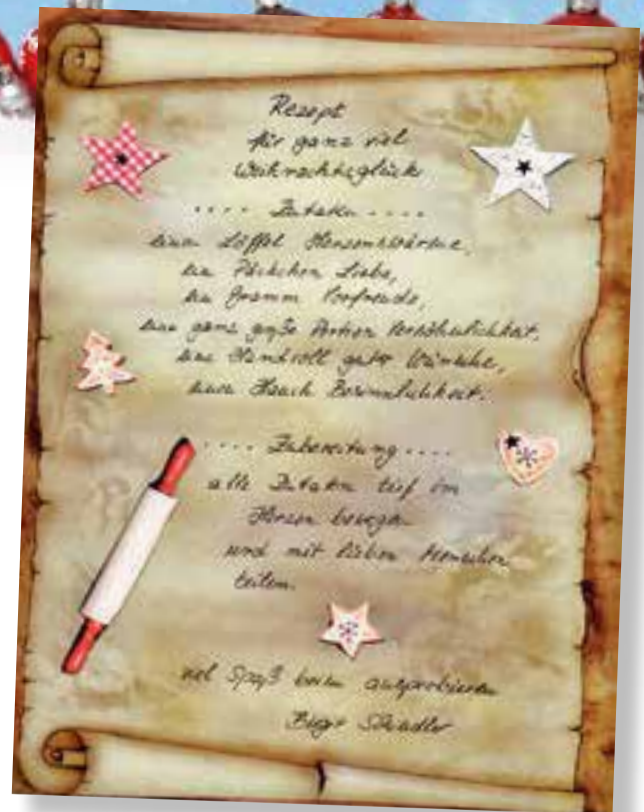 Rezept
für ganz viel
Weihnachtsglück
.... Zutaten ....
einen Löffel Herzenswärme,
ein Päckchen Liebe,
ein Gramm Vorfreude,
eine ganz große Portion Versöhnlichkeit,
eine Handvoll guter Wünsche,
einen Hauch Besinnlichkeit.
.... Zubereitung ....
alle Zutaten tief im
Herzen bewegen
und mit lieben Menschen
teilen.
viel Spaß beim ausprobieren